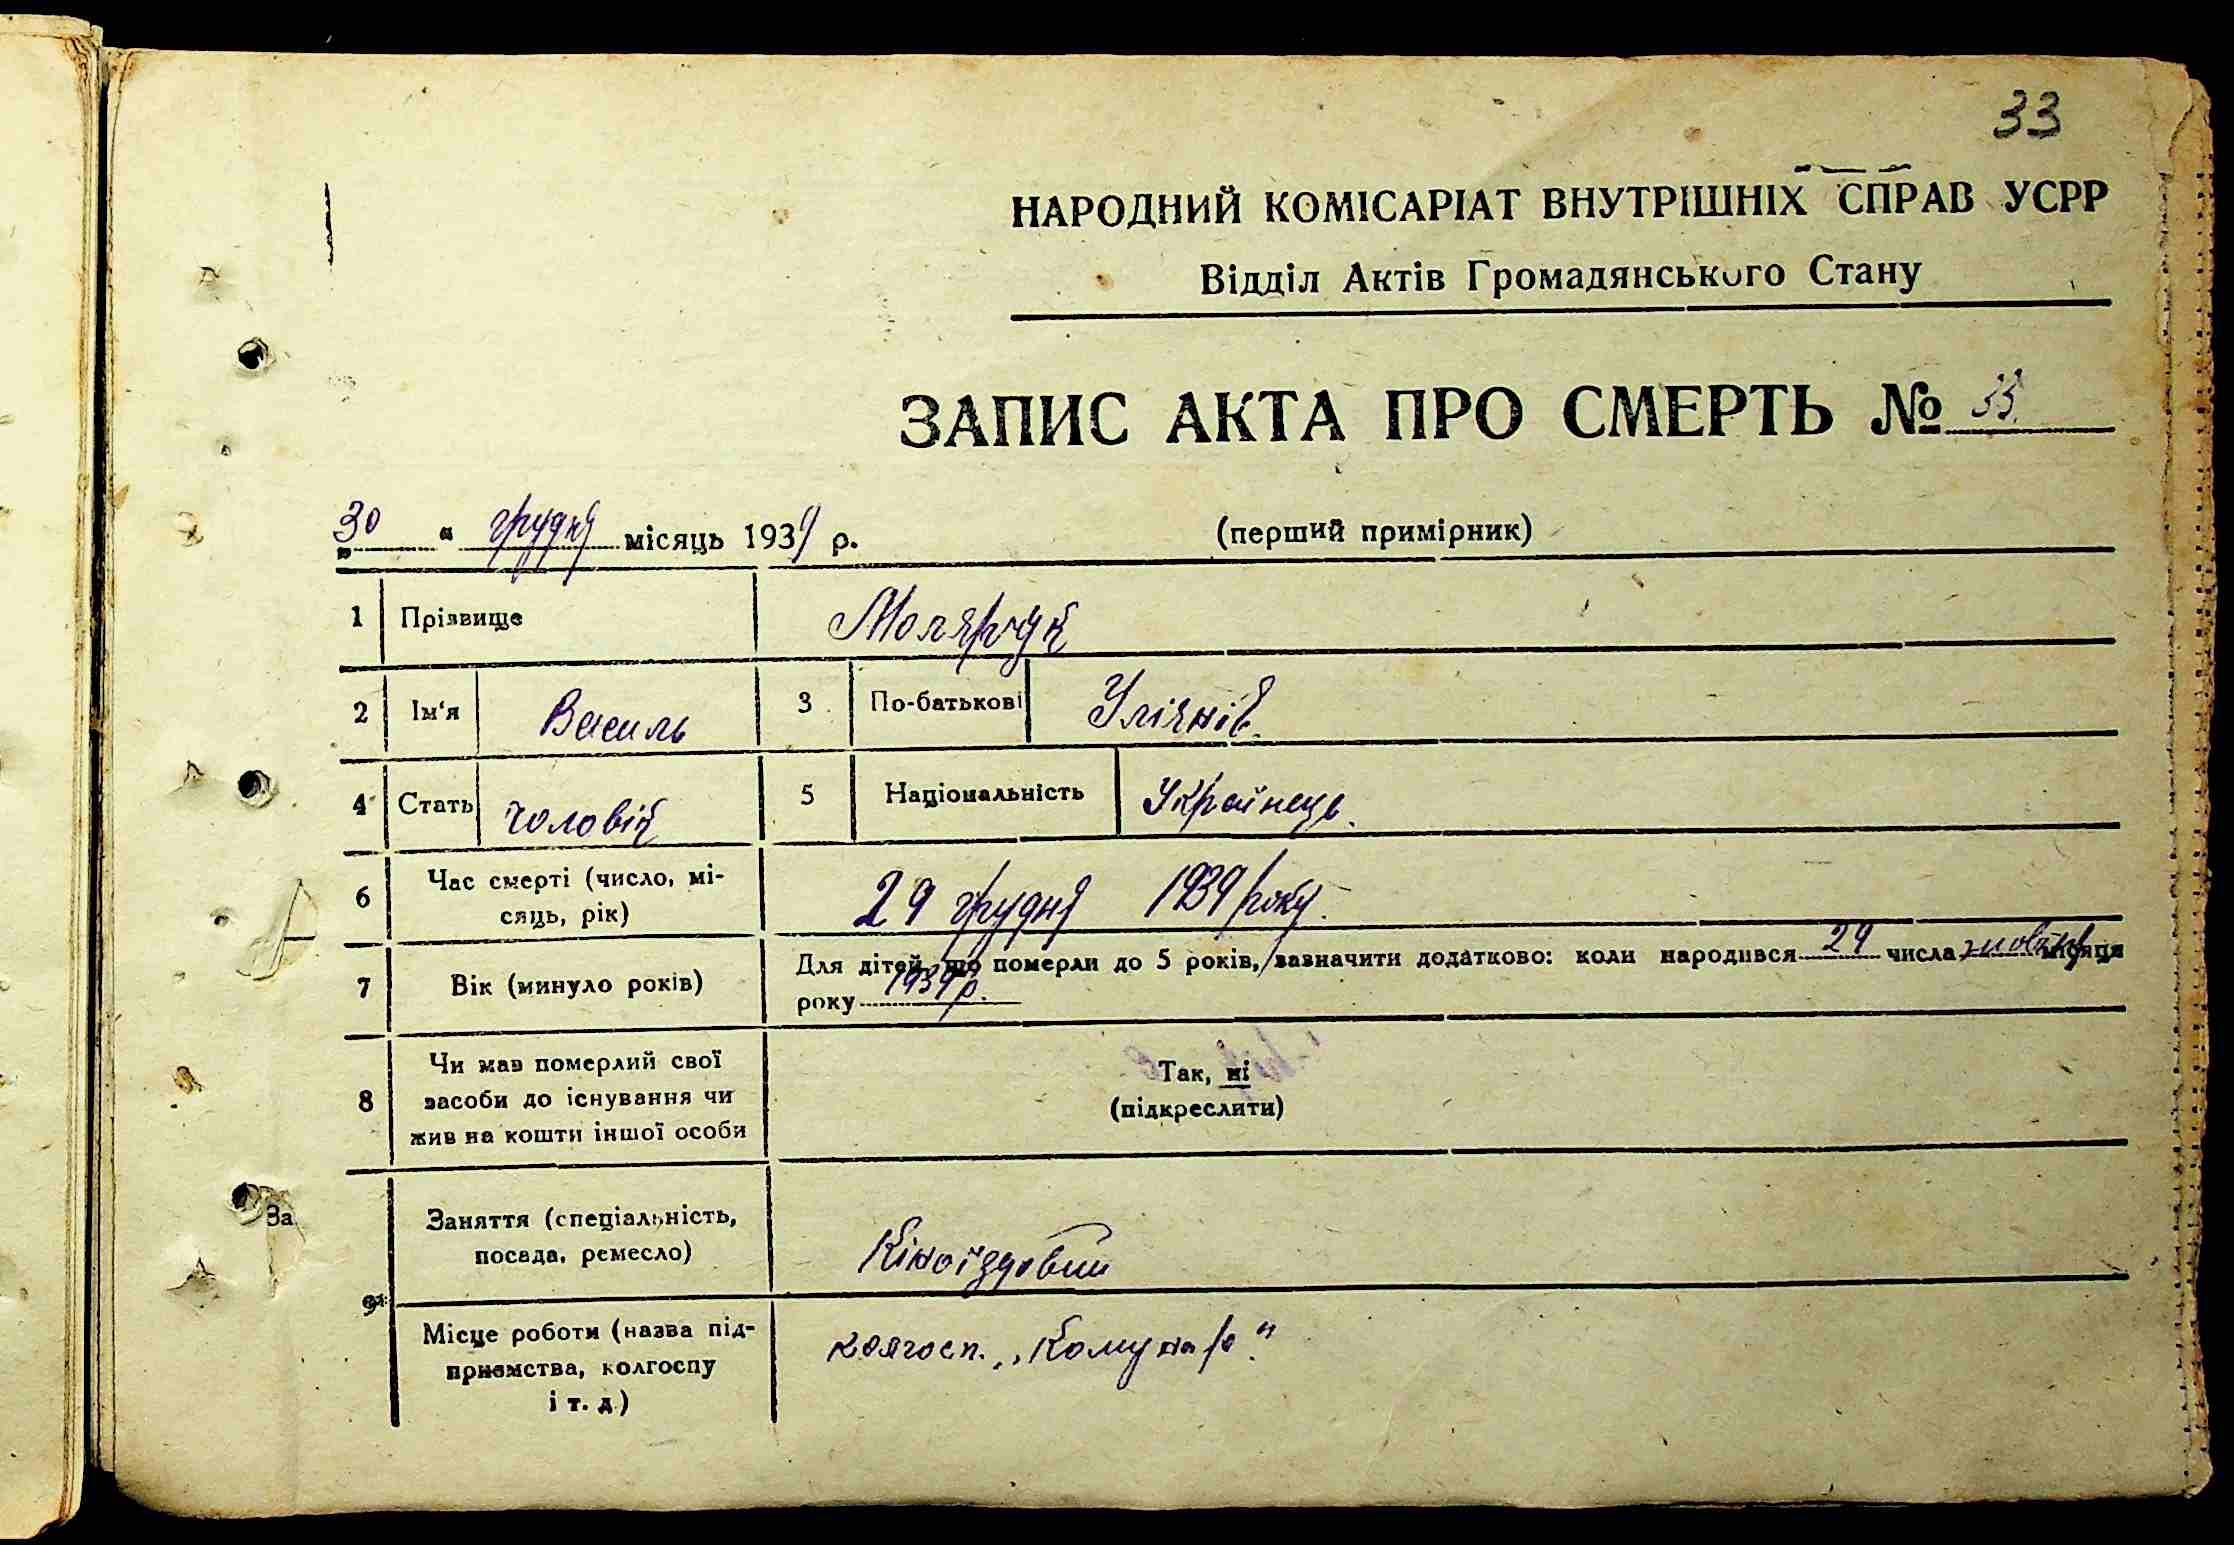 33
НАРОДНИЙ КОМІСАРІАТ ВНУТРІШНІХ СПРАВ УСРР
Відділ Актів Громадянського Стану
ЗАПИС АКТА ПРО СМЕРТЬ № 33.
„30“ грудня місяць 1939 р. (перший примірник)
1 Прізвище Молярчук
2 Ім'я Василь 3 По-батькові Улянів.
4 Стать чоловік 5 Національність Українець.
6 Час смерті (число, мі-
сяць, рік) 29 грудня 1939 року.
7 Вік (минуло років) Для дітей, що померли до 5 років, зазначити додатково: коли народився 29 числа жовтня місяця
року 1939 р.
8 Чи мав померлий свої
засоби до існування чи
жив на кошти іншої особи
Так, ні
(підкреслити)
За
Заняття (спеціальність,
посада, ремесло)
9
Місце роботи (назва під-
приємства, колгоспу
і т. д)
колгосп. „Комунар“